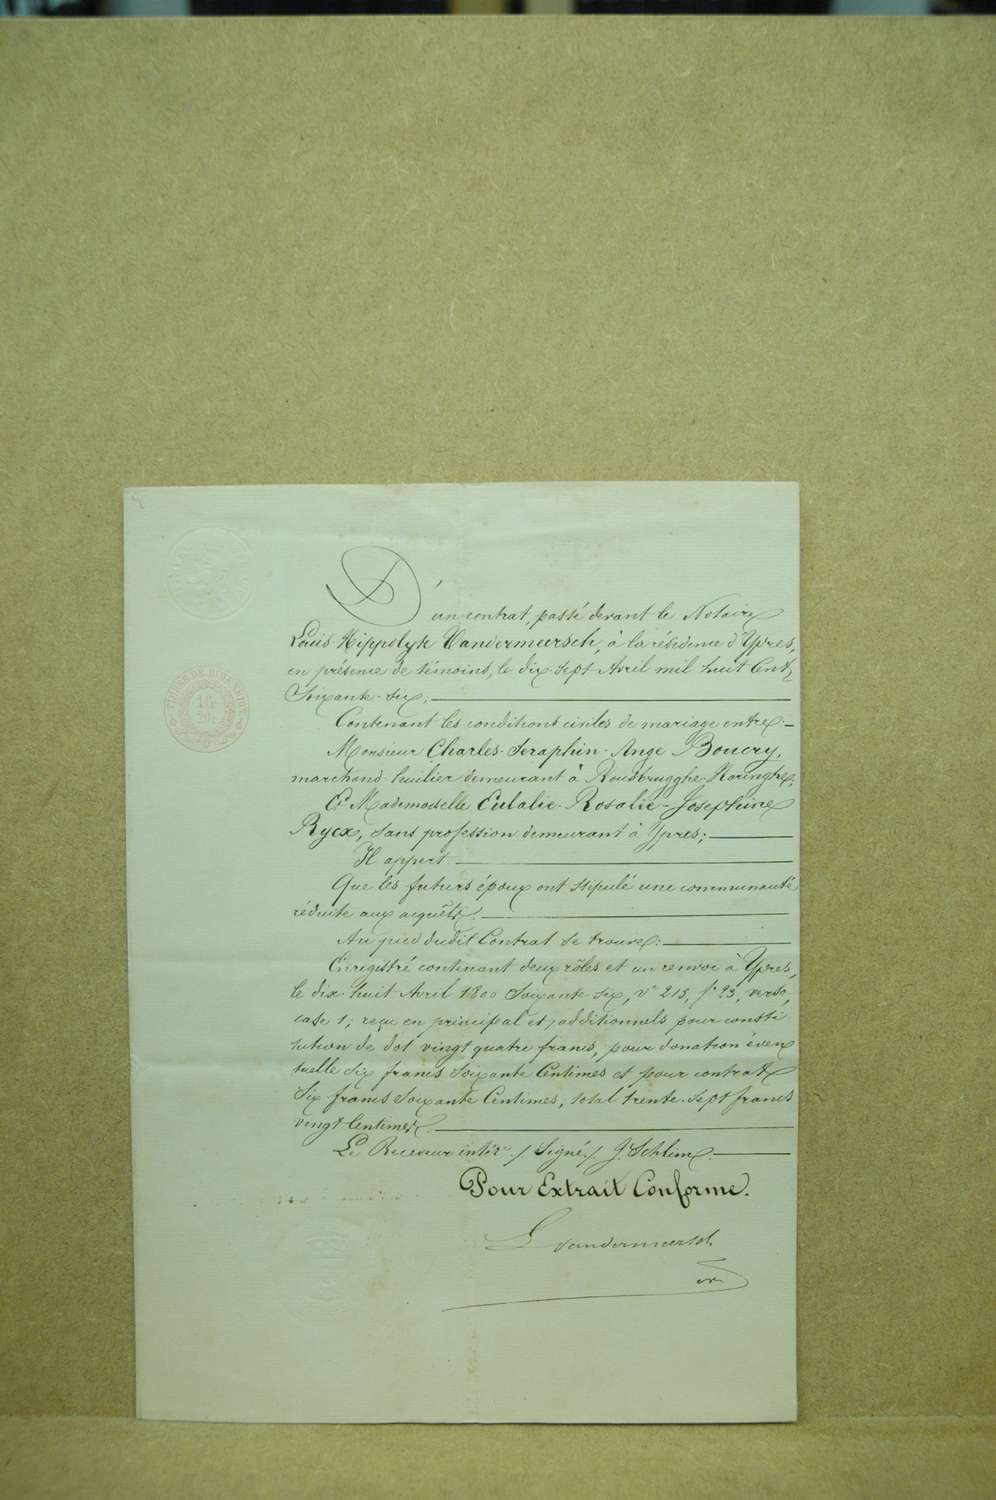 D'un contrat, passé devant le Notaire
Louis Hippolyte Vandermeersch, à la résidence d'Ypres,
en présence de témoins, le dix-sept Avril mil huit Cent
Soixante-six,
Contenant les conditions civiles de mariage entre
Monsieur Charles-Seraphin-Ange Boucry,
marchand huilier demeurant à Rousbrugghe-Haringhe,
Et Mademoiselle Eulalie-Rosalie-Josephine
Rycx, sans profession demeurant à Ypres;
Il appert
Que les futurs époux ont stipulé une communauté
réduite aux acquêts.
Au pied dudit Contrat se trouve:
Enregistré contenant deux rôles et un renvoi à Ypres,
le dix-huit Avril 1800 Soixante six, vol 215, f° 23, verso,
case 1; reçu en principal et additionnels pour consti-
tution de dot vingt quatre francs, pour donation éven
tuelle six francs soixante Centimes et pour contrat
Six francs soixante Centimes, total trente-sept francs
vingt Centimes.
Le Receveur intér. / Signé / Schlim
Pour Extrait Conforme.
L Vandermeersch
1 fr
20 c